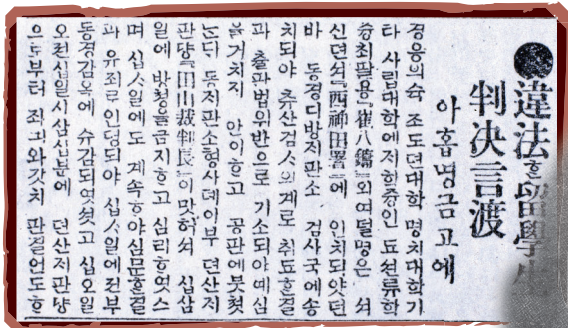 違法ᄒᆞᆫ留學生
判決言渡
아홉명금고에
경응의슉 조도뎐대학 명치대학기
타 사립대학에재학즁인 됴션류학
ᄉᆡᆼ최팔용『崔八鏞』외여덜명은 셔
신뎐셔『西神田署』에 인치되얏던
바 동경디방재판소 검사국에송
치되야 츄산검사의계로 취됴ᄒᆞᆫ결
과 츌판법위반으로 기소되야예심
을거치지 안이ᄒᆞ고 공판에붓첫
는ᄃᆡ 동재판소형사뎨이부 뎐산재
판쟝『田山裁判長』이맛허셔 십삼
일에 방청을금지ᄒᆞ고 심리ᄒᆞ엿스
며 십ᄉᆞ일에도 계속ᄒᆞ야심문ᄒᆞᆫ결
과 유죄로인뎡되야 십ᄉᆞ일에전부
동경감옥에 슈감되엿섯고 십오일
오전십일시삼십분에 뎐산재판쟝
으로부터 좌긔와갓치 판결언도ᄒᆞ